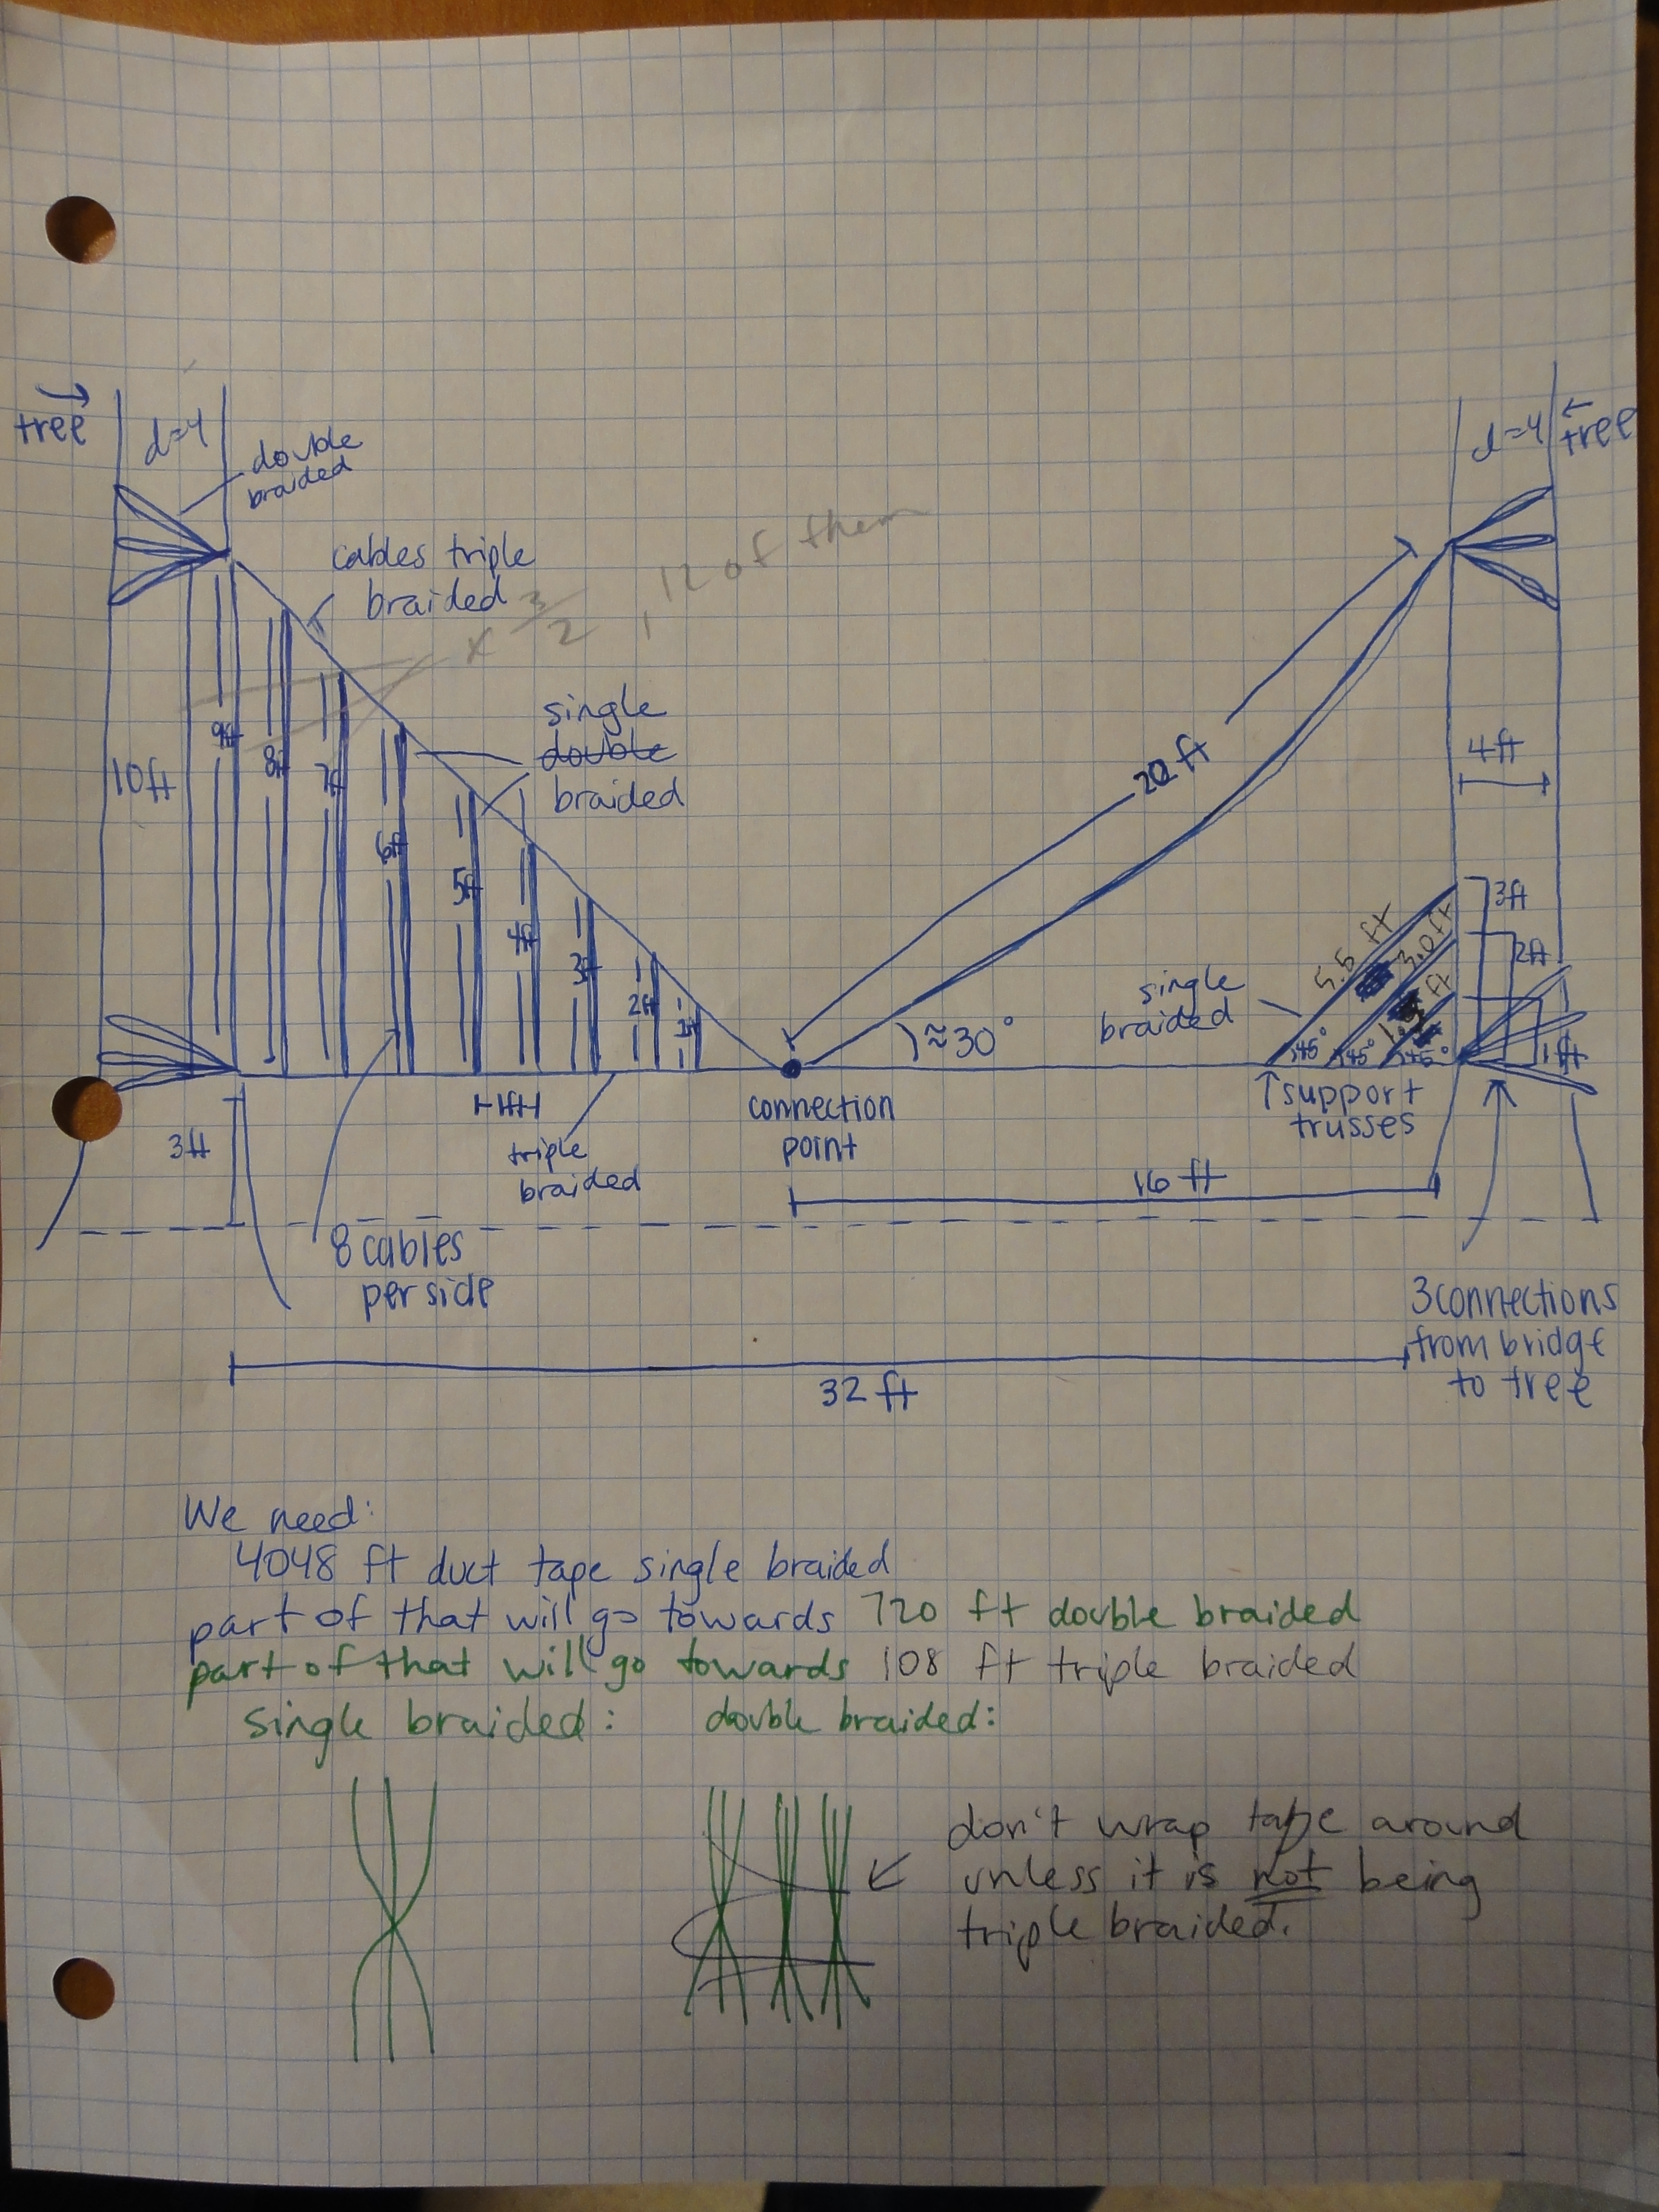 →
tree
d=4
double
braided
d=4
←
tree
cables triple
braided
x 3/2 , 12 of them
single
double
braided
10ft
9ft
8ft
7ft
6ft
5ft
4ft
3ft
2ft
1ft
20 ft
4ft
3ft
2ft
1ft
5.5 ft
3.0 ft
ft
single
braided
≈30°
45°
45°
45°
↑support
trusses
connection
point
triple
braided
3ft
16 ft
8 cables
per side
3 connections
from bridge
to tree
32 ft
We need:
4048 ft duct tape single braided
part of that will go towards 720 ft double braided
part of that will go towards 108 ft triple braided
single braided: double braided:
don't wrap tape around
unless it is not being
triple braided.